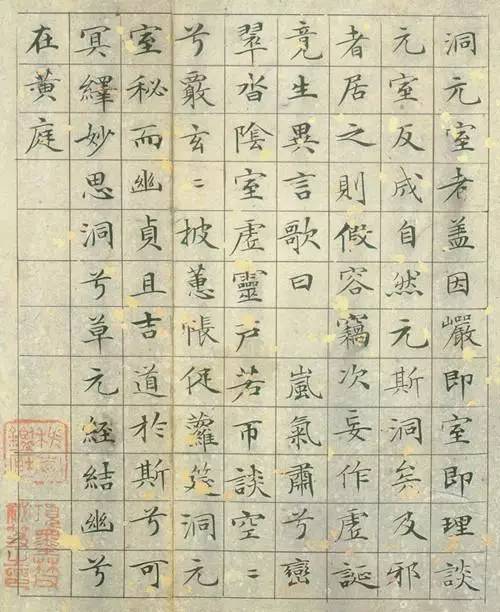 洞元室者盖因巖即室即理談
元室反成自然元斯洞矣及邪
者居之則假容竊次妄作虛誕
竟生異言歌曰 嵐氣肅兮巒
翠沓陰室虛靈戶若帀談空〻
兮覈玄〻披蕙帳促蘿筵洞元
室秘而幽貞且吉道於斯兮可
冥繹妙思洞兮草元經結幽兮
在黄庭